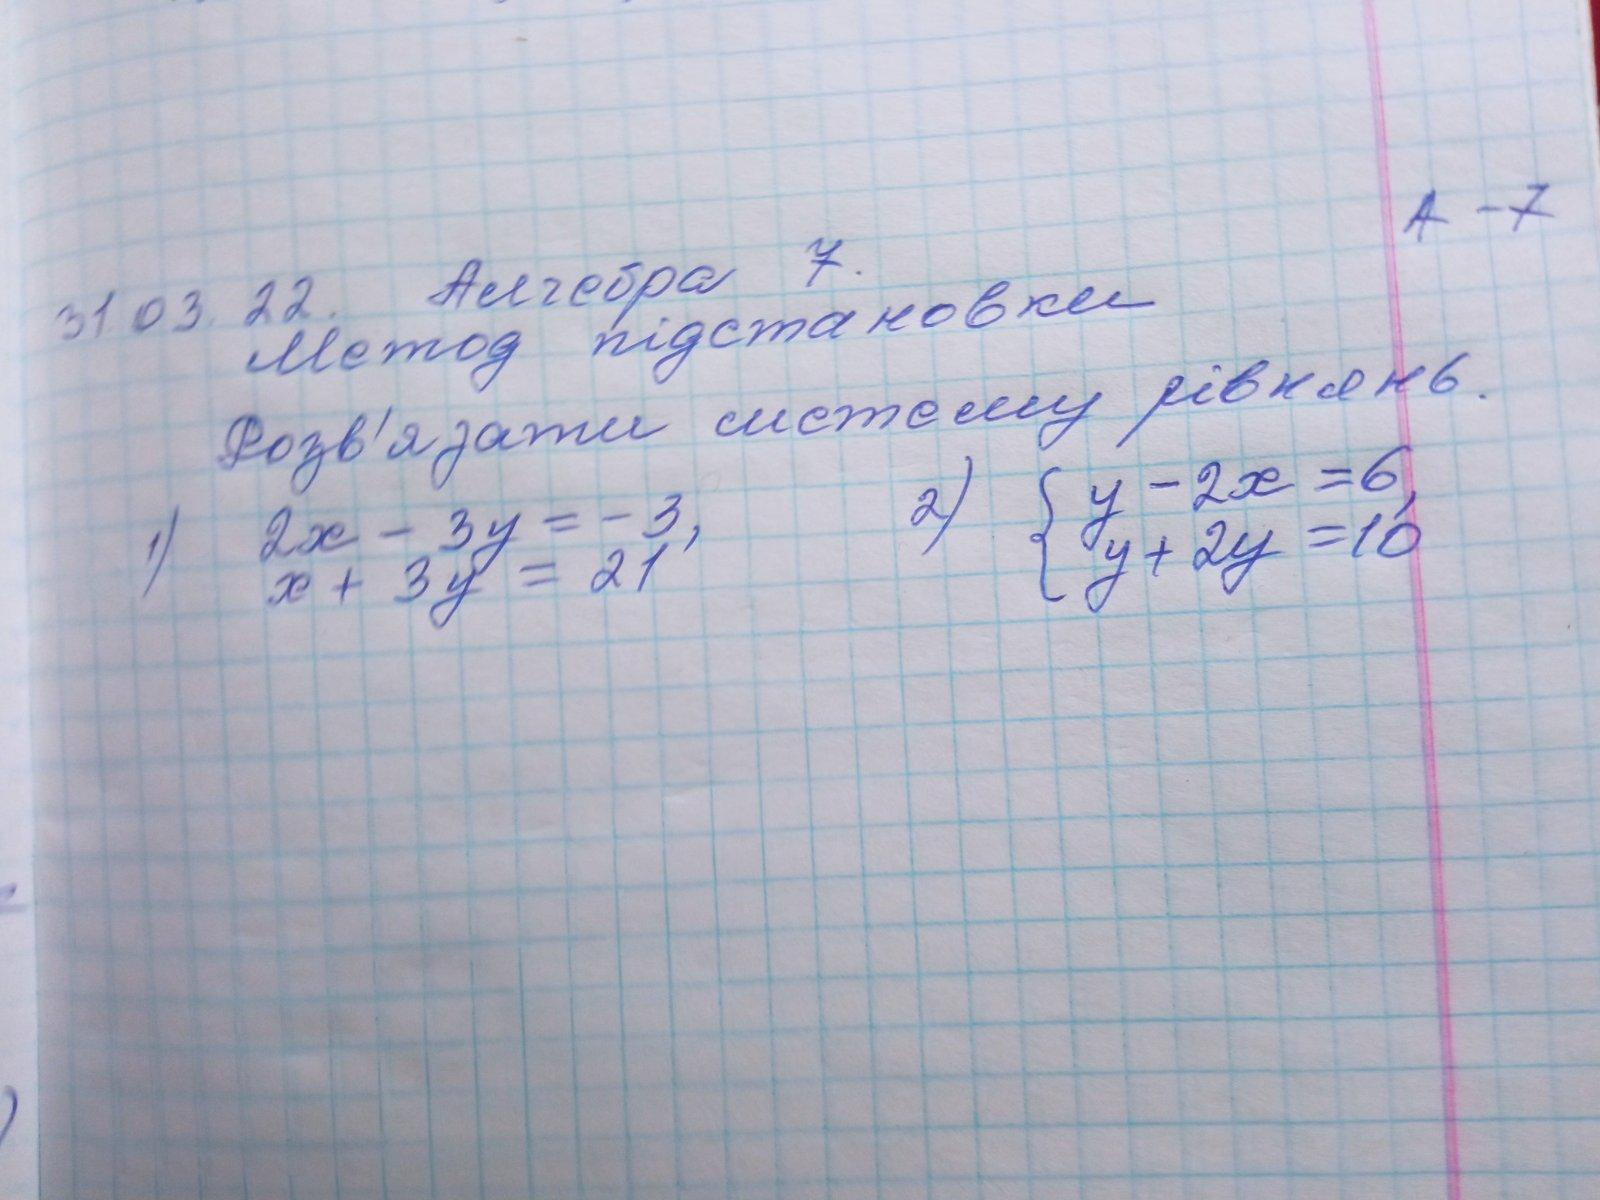 А - 7
31.03.22. Алгебра 7.
Метод підстановки
Розв'язати систему рівнянь.
1) 2x - 3y = -3,
x + 3y = 21
2) { y - 2x = 6,
y + 2y = 10